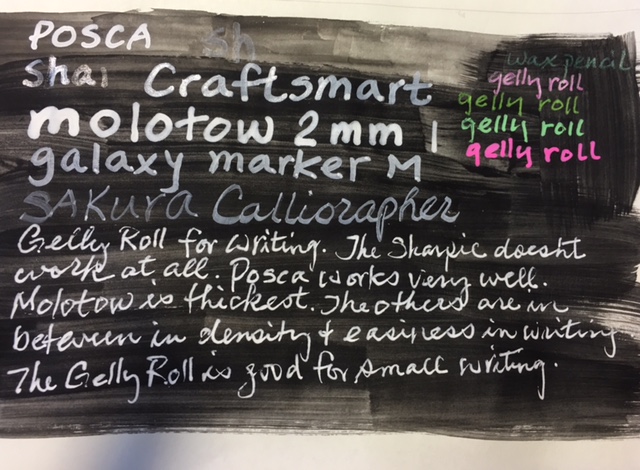 POSCA sh
Sha
Craftsmart
molotow 2mm
galaxy marker M
SAKura Calliorapher
wax pencil
gelly roll
gelly roll
gelly roll
gelly roll
Gelly Roll for writing. The Sharpie doesnt
work at all. Posca works very well.
Molotow is thickest. The others are in
between in density & easiness in writing
The Gelly Roll is good for small writing.